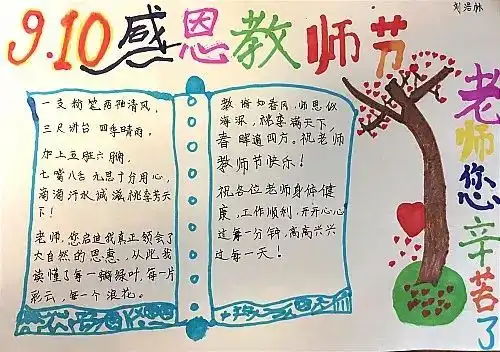 9.10感恩教师节
刘浩林
一支粉笔两袖清风，
三尺讲台 四季晴雨，
加上五脏六腑，
七嘴八舌 九思十分用心，
滴滴汗水诚滋桃李芳天
下！
老师，您启迪我真正领会了
大自然的恩惠，从此我
读懂了每一瓣绿叶，每一片
彩云，每一个浪花。
教诲如春风，师恩似
海深，桃李满天下，
春晖遍四方。祝老师
教师节快乐！
祝各位老师身体健
康，工作顺利，开开心心
过每一分钟，高高兴兴
过每一天！
老师您辛苦了